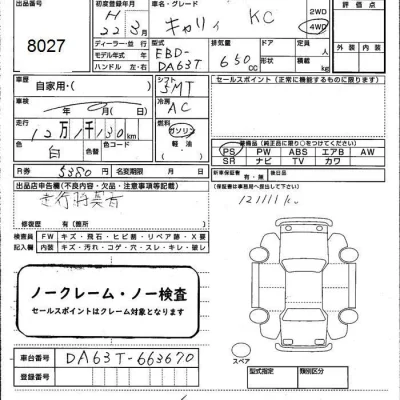 出品番号
8027
初度登録年月
H
22年3月
車名・グレード
キャリィ KC
2WD
4WD
評価点
ディーラー・並行
モデル年式 年
ハンドル 左・右
型式
EBD-
DA63T
排気量
650
CC
定員
人
積載量
kg
外装
内装
車歴
自家用・( )
シフト
5MT
セールスポイント(正常に機能するものに限ります)
車検
年 月( 日)
冷房
AC
走行
12万1千130Km
燃料
ガソリン
軽油
( )
色
白
色替
色コード
装備品(純正品に限り○をつけてください)
PS PW ABS エアB AW
SR ナビ TV カワ
R券
5380
円
名変期限 月 日
新車保証書
有・無
出品店申告欄(不良内容・欠品・注意事項等記載)
(保証書は事務局へ提出して下さい)
121111 km
修復歴 有(箇所 )
検査員
記入欄
FW キズ・飛石・ヒビ箇・リペア跡・X要
内装 キズ・汚れ・コゲ・穴・スレ・キレ・破レ
ノークレーム・ノー検査
セールスポイントはクレーム対象となります
スペア
車台番号
DA63T-663670
登録番号
型式指定
類別区分